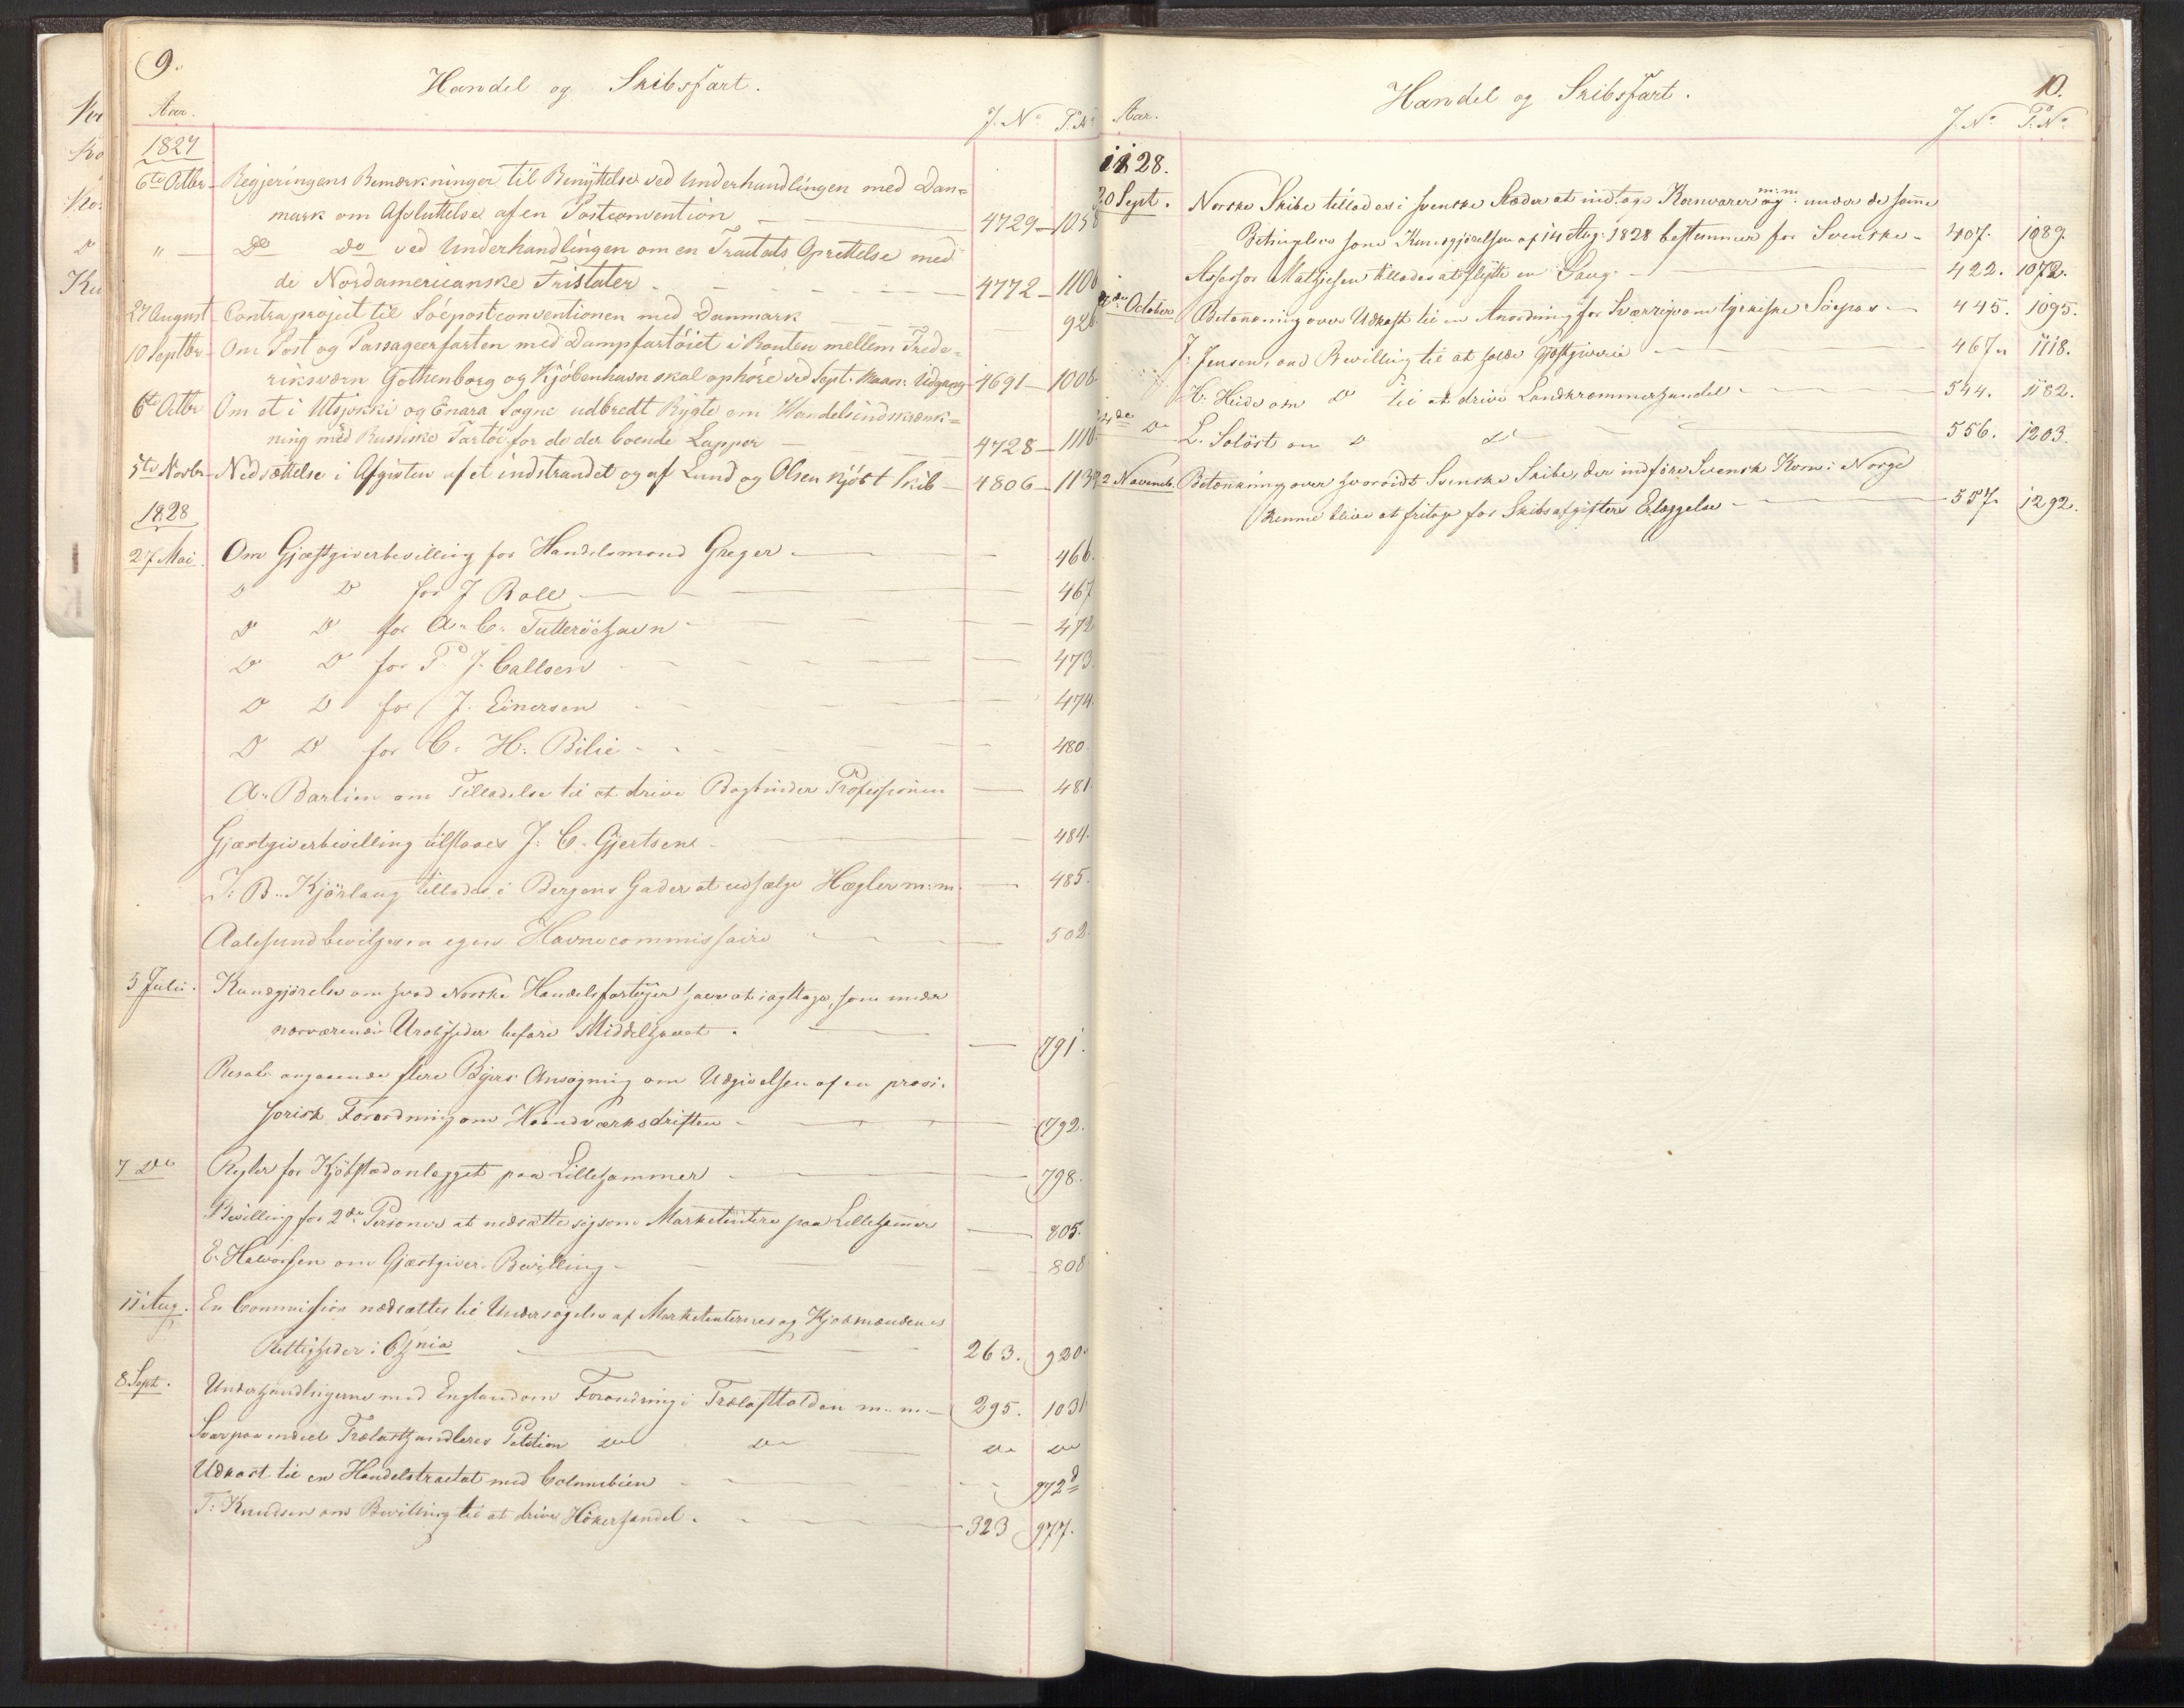 9.
Handel og Skibsfart.
Aar. J. No P. No
1827
6te Octbr Regjeringens Bemærkninger til Benyttelse ved Underhandlingen med Dan=
mark om Afsluttelse af en Postconvention 4729 - 1058
" Do Do ved Underhandlingen om en Tractats Oprettelse med
de Nordamericanske Fristater 4772 - 1106
27 August Contraproject til Söepostconventionen med Danmark 926
10 Septbr Om Post og Passageerfarten med Dampfartöiet i Routen mellem Frede=
riksværn Gothenborg og Kjöbenhavn skal ophöre ved Sept. Maan: Udgang 4691 - 1006
6te Octbr Om et i Utsjokki og Enara Sogne udbredt Rygte om Handelsindskrænk=
ning med Russiske Fartöi for de der boende Lapper 4728 - 1110
5te Novbr Nedsættelse i Afgivten af et indstrandet og af Lund og Olsen kjöbt Skib 4806 - 1132
1828
27 Mai. Om Gjæstgiverbevilling for Handelsmand Greger 466.
Do Do for J Roll 467
Do Do for A. C. Tutteröehavn 472
Do Do for P. J. Calloen 473.
Do Do for J. Einersen 474.
Do Do for C. H. Bilie 480
A. Bartien om Tilladelse til at drive Bogbinder Professionen 481
Gjæstgiverbevilling tilstaaes J. C. Gjertsen 484.
J: B. Kjörlaug tillades i Bergens Gader at udsælge Hægler m:m. 485.
Aalesund bevilges en egen Havnecommissair 502.
5 Julii. Kundgjörelse om hvad Norske Handelsfartöyer have at iagttage, som under
nærværende Uroligheder befare Middelhavet. 791.
Resol: angaaende flere Byers Ansögning om Udgivelsen af en provi-
sorisk Forordning om Haandværksdriften 792.
7 Do Regler for Kjöbstadanlægget paa Lillehammer 798.
Bevilling for 2de Personer at nedsætte sig som Marketentere paa Lillehamer 805.
E. Halvorsen om Gjæstgiver-Bevilling 808
11 Aug. En Commission nedsættes til Undersögelse af Marketenternes og Kjöbmændenes
Rettigheder i Christiania 263. 920.
8 Sept. Underhandlingerne med England om Forandring i Trælasttolden m. m. 295. 1031
Svar paa endeel Trælasthandleres Petition Do Do Do Do
Udkast til en Handelstractat med Columbien 972
T: Knudsen om Bevilling til at drive Hökerhandel. 323 977.
10.
Handel og Skibsfart.
Aar. J. No P. No
1828.
20 Sept. Norske Skibe tillades i svenske Stæder at indtage Kornvarer m:m: under de same
Betingelser som Kundgjörelsen af 14 Aug: 1828 bestemmer for Svenske 407. 1089.
Assessor Mathiesen tillades at flytte en Saug 422. 1072.
October Betænkning over Udkast til en Anordning for Sverrig om tyrkiske Söepas 445. 1095.
J. Jensen, om Bevilling til at holde Gjæstgiverie 467. 1118.
H. Heide om Do til at drive Landkrammerhandel 544. 1182.
Do L. Solöst om Do Do 556. 1203.
2 Novemb. Betænkning over hvorvidt Svenske Skibe, der indföre Svensk Korn i Norge
kunne blive at fritage for Skibsafgifters Erlæggelse 557. 1292.